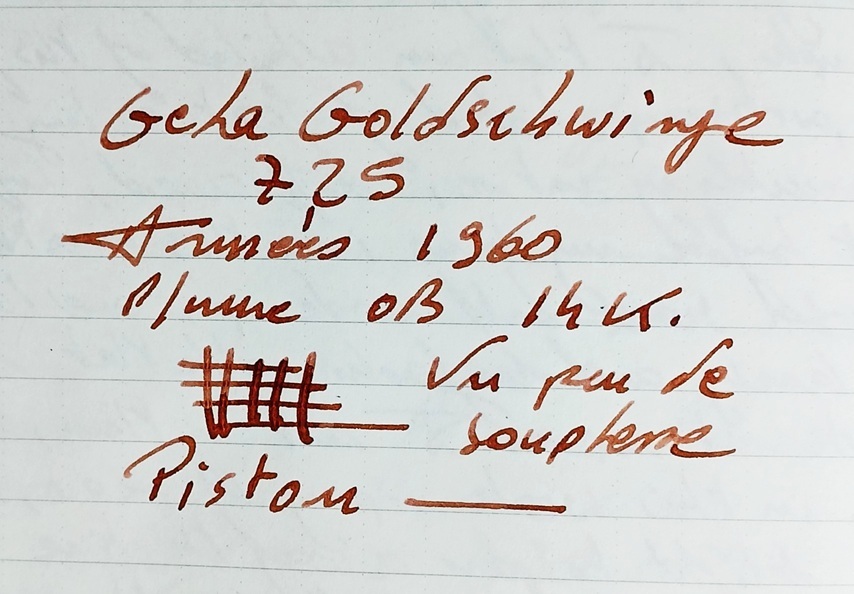 Geha Goldschwinge
725
Années 1960
Plume OB 14 K.
Un peu de
souplesse
Piston